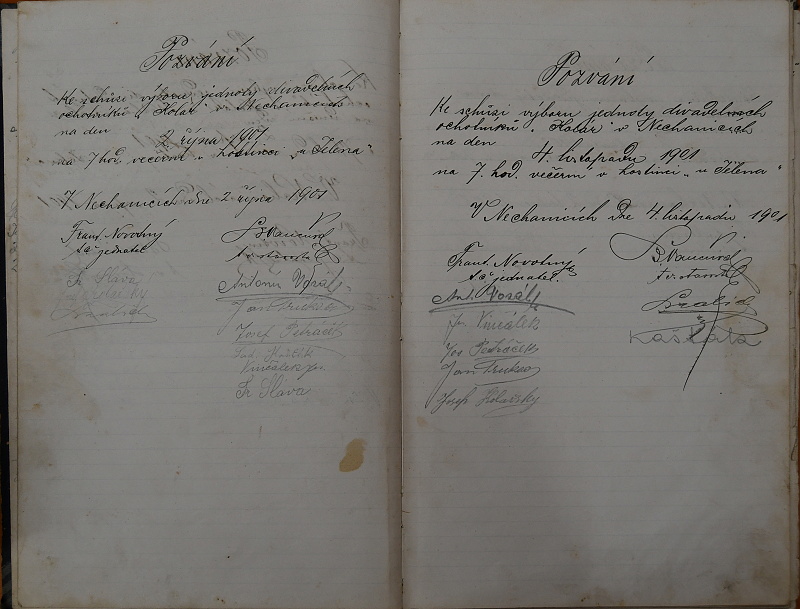 Pozvání
Ke schůzi výboru jednoty divadelních
ochotníků „Kolár" v Nechanicích
na den
2 října 1901
na 7 hod. večerní v hostinci „u Jelena"
V Nechanicích dne 2 října 1901
Frant. Novotný
t.č. jednatel
Fr. Sláva
Antonín Vořáš
Jan Truksa
Josef Petráček
Vinčálek
Fr Sláva
Pozvání
Ke schůzi výboru jednoty divadelních
ochotníků „Kolár" v Nechanicích
na den
4. listopadu 1901
na 7. hod. večerní v hostinci „u Jelena"
V Nechanicích dne 4. listopadu 1901
Frant. Novotný
t.č. jednatel.
t.č. starosta
Ant.
Vinčálek
Jos Petráček
Jan Truksa
Josef
Kaškáta